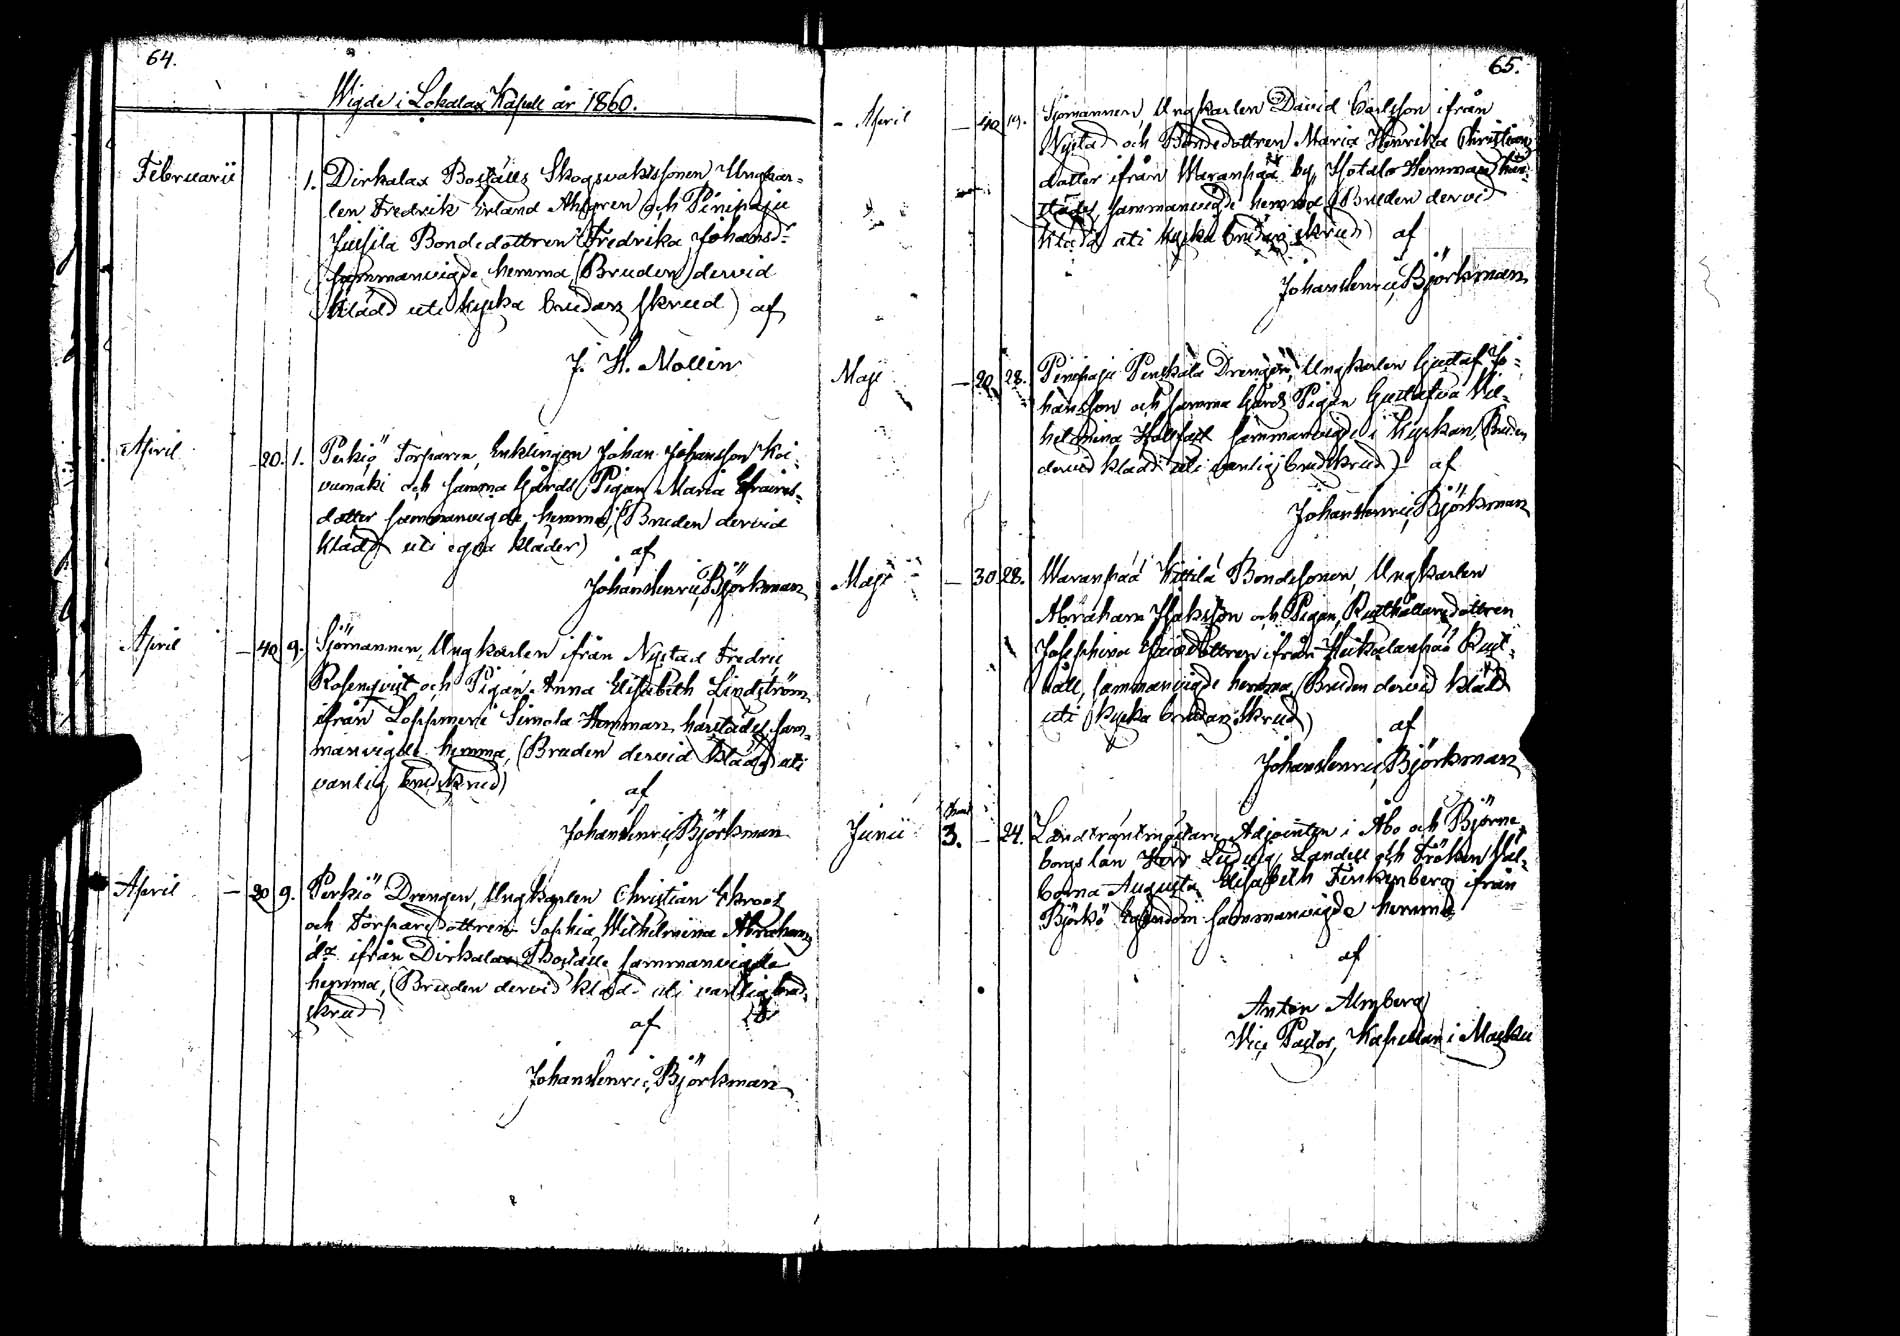 64.
Wigde i Lokalax Kapell år 1860.
Februarii 1. Dirkalax Boställs Skogsvaktssonen Ungkar-
len Fredrik Erland Ahlgren och Pinipaju
Jussila Bondedottren Fredrika Johansdr
sammanvigde hemma (Bruden dervid
klädd uti kyrka brudans skrud) af
J. H. Mollin
April 20. 1. Perkiö Torparen, Enklingen Johan Johansson Koi-
vumäki och samma Gårds Pigan Maria Efraims-
dotter sammanvigde hemma, (Bruden dervid
klädd uti egna kläder) af
Johan Henric Björkman
April — 40 9. Sjömannen, Ungkarlen ifrån Nystad Fredric
Rosenqvist och Pigan Anna Elisabeth Lindström
ifrån Loppmeri Simola Hemman härstädes sam-
manvigde hemma, (Bruden dervid klädd uti
vanlig brudskrud) af
Johan Henric Björkman
April — 20 9. Perkiö Drengen, Ungkarlen Christian Ekroos
och Torparedottren Sophia Wilhelmina Abrahams
dr ifrån Dirkalax Boställe sammanvigde
hemma, (Bruden dervid klädd uti vanlig brud-
skrud) af
Johan Henric Björkman
65.
April — 40 19. Sjömannen Ungkarlen David Carlsson ifrån
Nystad och Bondedottren Maria Henrika Christians
dotter ifrån Waranpää by, Hemman här-
städes, sammanvigde hemma (Bruden dervid
klädd uti kyrka brudans skrud) af
Johan Henric Björkman
Maji — 20 28. Pinipaju Penskala Drengen, Ungkarlen Gustaf Jo-
hansson och samma Gårds Pigan Gustafva Wil-
helmina sammanvigde i Kyrkan, (Bruden
dervid klädd uti vanlig brudskrud) af
Johan Henric Björkman
Maji — 30 28. Waranpää Kittilä Bondesonen, Ungkarlen
Abraham Isaksson och Pigan, Rusthållaredottren
Josephina ifrån Rust-
håll, sammanvigde hemma, (Bruden dervid klädd
uti kyrka brudans skrud) af
Johan Henric Björkman
Junii 3. — 24. Landträntmästare Adjointen i Åbo och Björne-
borgs län Herr Ludvig Landell och Fröken Wal-
borna Augusta Elisabeth Finkenberg ifrån
Björkö Egendom sammanvigde hemma
af
Anton Almberg
Vice Pastor, Kapellan i Masku